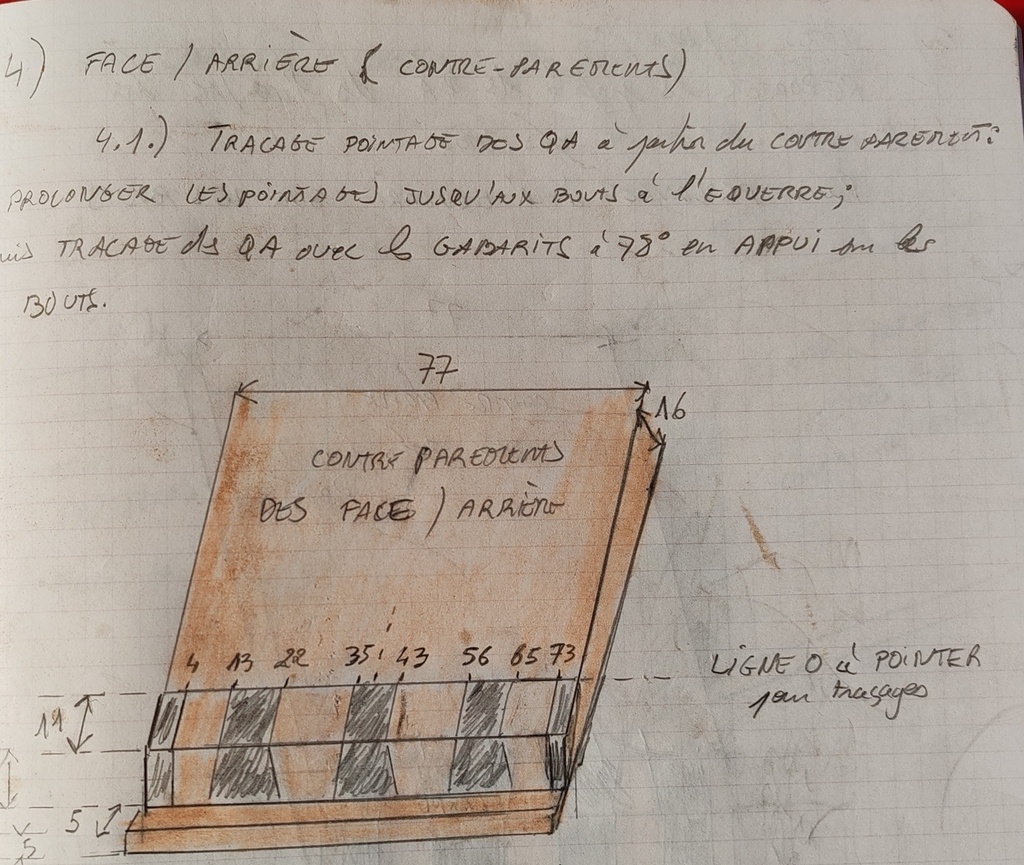 4) FACE / ARRIÈRE ( CONTRE-PAREMENTS)
4.1.) TRACAGE POINTAGE DES QA à partir du CONTRE PAREMENT:
PROLONGER LES POINTAGES JUSQU'AUX BOUTS à l'EQUERRE;
uis TRACAGE ds QA avec ls GABARITS à 78° en APPUI sur les
BOUTS.
77
16
CONTRE PAREMENTS
DES FACE / ARRIÈRE
4 13 22 35 43 56 65 73
LIGNE O à POINTER
pour traçages
11
5
5